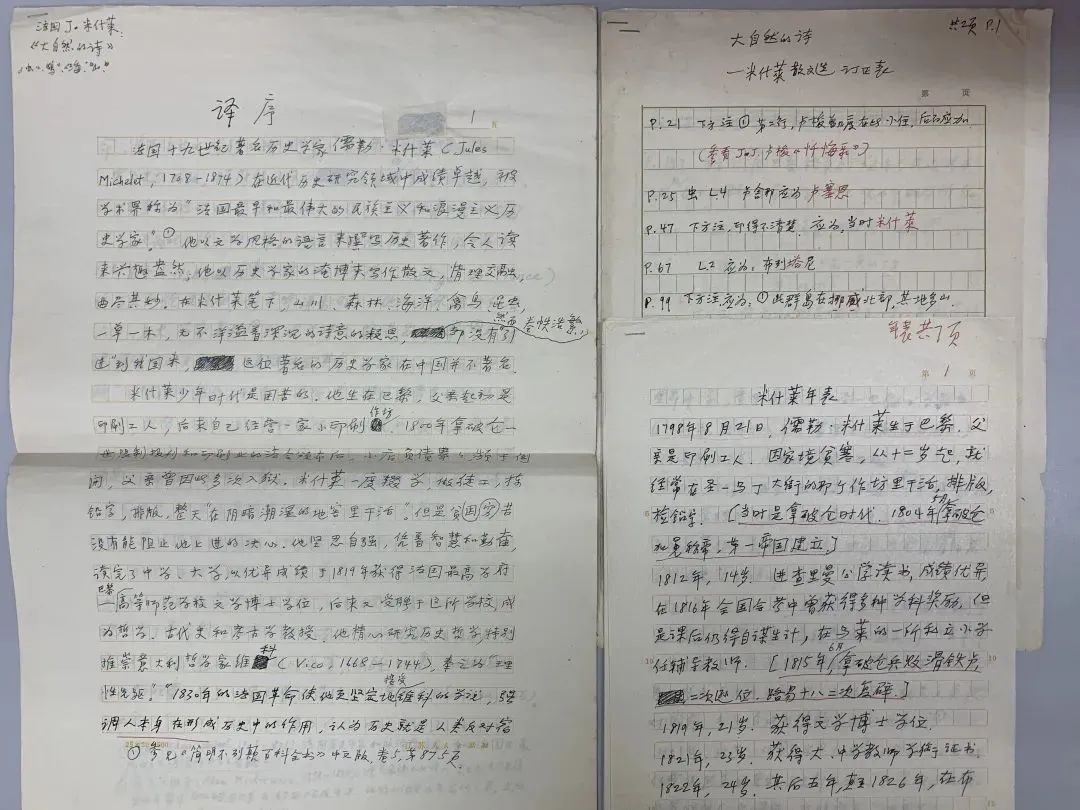 法国 J. 米什莱
《大自然的诗》
译序
1
法国十九世纪著名历史学家儒勒·米什莱(Jules
Michelet, 1798-1874)在近代历史研究领域中成绩卓越，被
学术界称为"法国最早和最伟大的民族主义和浪漫主义历
史学家"。①他以文学风格的语言来撰写历史著作，令人读
来兴趣盎然；他以历史学家的淹博来写作散文，情理交融，
曲尽其妙。在米什莱笔下，山川、森林、海洋、禽鸟、昆虫
一草一木，无不洋溢着深沉的诗意的凝思，
然而 卷帙浩繁，
却没有引
进到我国来，这位著名的历史学家在中国并不著名。
米什莱少年时代是困苦的。他生在巴黎，父亲起初是
印刷工人，后来自己经营一家小印刷作坊。1800年拿破仑一
小店负债累累
父亲曾因此多次入狱。米什莱一度辍学，做徒工，拣
铅字，排版，整天"在阴暗潮湿的地窖里干活"。但是贫困
没有能阻止他上进的决心。他坚忍自强，凭着智慧和勤奋，
读完了中学、大学，以优异成绩于1819年获得法国最高学府
—巴黎高等师范学校文学博士学位，后来又受聘于这所学校，成
为哲学、古代史和考古学教授。他精心研究历史哲学，特别
推崇意大利哲学家维科(Vico, 1668-1744)，奉之为"理
性先驱"。1830年的法国革命使他更坚定地接受维科的学说，强
调人本身在形成历史中的作用，认为历史就是人类反对宿
①参见《简明不列颠百科全书》中文版，卷5，第875页。
共2页 P.1
大自然的诗
—米什莱散文选 订正表
第 页
P.21 下方注①第二行，卢梭曾
后应加
(参看J.J.卢梭《忏悔录》)
P.25 虫 L.4 卢舍那应为卢塞恩
P.47 下方注，印得不清楚，应为，当时米什莱
P.67 L.2 应为：布列塔尼
P.99 下方注，应为：①此群岛在挪威北部，其地多山，
年表共7页
第 1 页
米什莱年表
1798年8月21日，儒勒·米什莱生于巴黎，父
亲是印刷工人。因家境贫寒，从十二岁起，就
经常在圣—马丁大街的那个作坊里干活，排版，
检铅字。[当时是拿破仑时代。1804年5月拿破仑
加冕称帝，第一帝国建立。]
1812年，14岁。进查理曼公学读书，成绩优异，
在1816年全国会考中曾获得多种学科奖励，但
是课后仍得自谋生计，在马莱的一所私立小学
任辅导教师。[1815年6月拿破仑兵败滑铁卢，
二次退位。路易十八二次复辟。]
1819年，21岁。获得文学博士学位。
1821年，23岁。获得大、中学教师学衔证书。
1822年，24岁。其后五年，直至1826年，在布